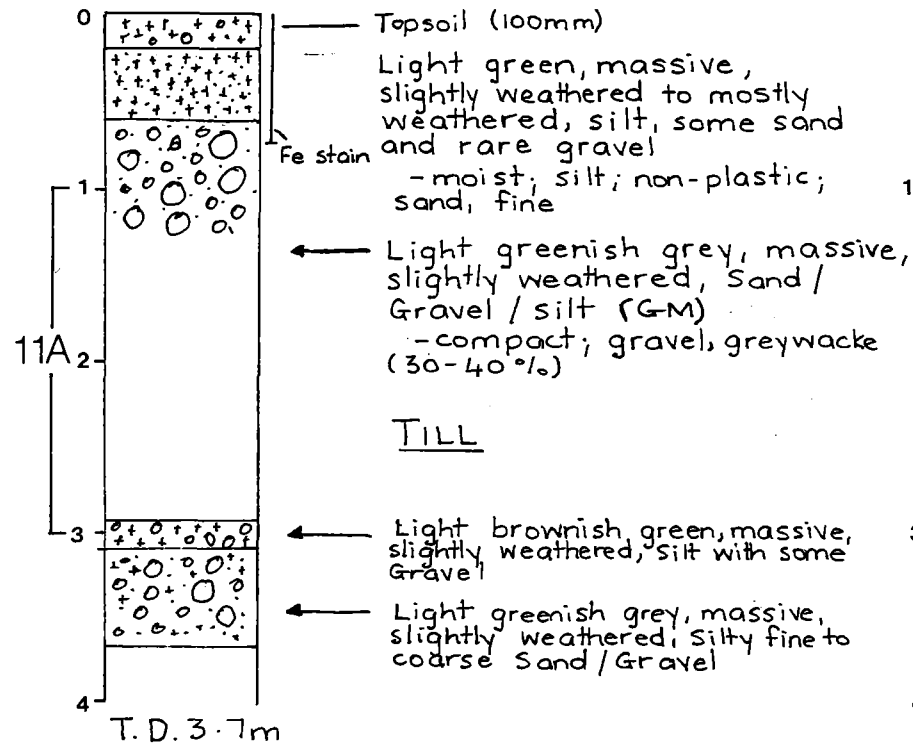 0
Topsoil (100mm)
Light green, massive,
slightly weathered to mostly
weathered, silt, some sand
and rare gravel
Fe stain
-moist; silt; non-plastic;
sand, fine
1
1
Light greenish grey, massive,
slightly weathered, Sand/
Gravel/silt (GM)
-compact; gravel, greywacke
(30-40%)
11A
2
TILL
3
Light brownish green, massive,
slightly weathered, silt with some
Gravel
Light greenish grey, massive,
slightly weathered, Silty fine to
coarse Sand/Gravel
4
T.D. 3.7m